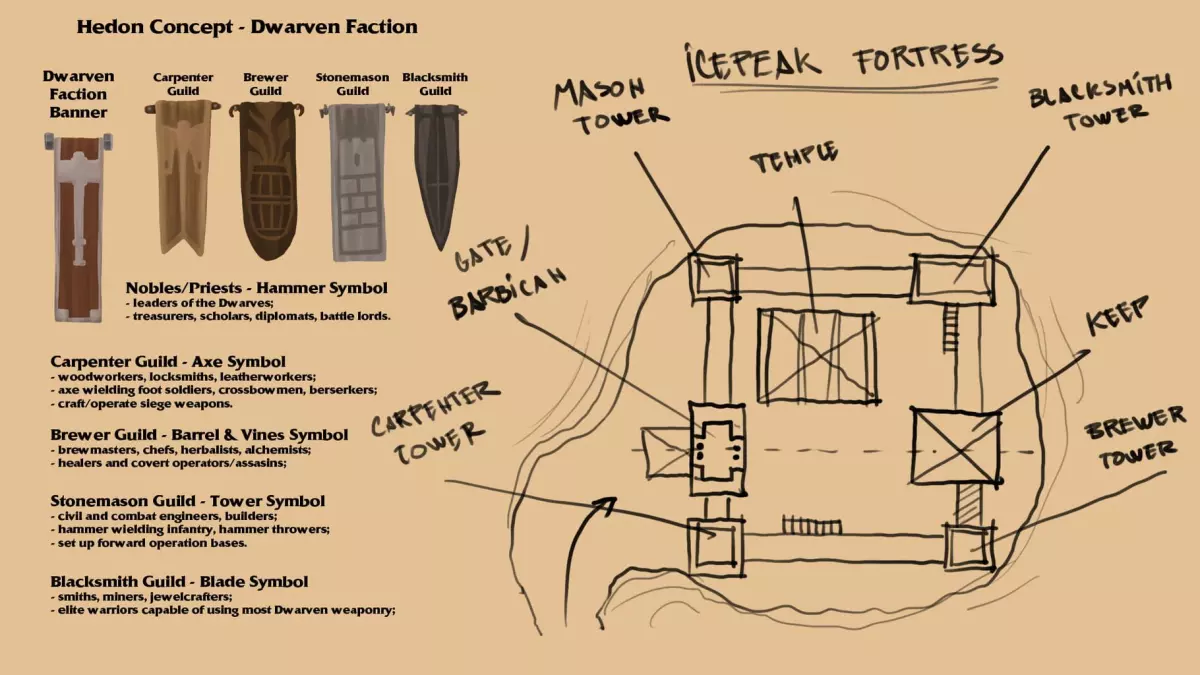 Hedon Concept - Dwarven Faction
Dwarven
Faction
Banner
Carpenter
Guild
Brewer
Guild
Stonemason
Guild
Blacksmith
Guild
Nobles/Priests - Hammer Symbol
- leaders of the Dwarves;
- treasurers, scholars, diplomats, battle lords.
Carpenter Guild - Axe Symbol
- woodworkers, locksmiths, leatherworkers;
- axe wielding foot soldiers, crossbowmen, berserkers;
- craft/operate siege weapons.
Brewer Guild - Barrel & Vines Symbol
- brewmasters, chefs, herbalists, alchemists;
- healers and covert operators/assasins;
Stonemason Guild - Tower Symbol
- civil and combat engineers, builders;
- hammer wielding infantry, hammer throwers;
- set up forward operation bases.
Blacksmith Guild - Blade Symbol
- smiths, miners, jewelcrafters;
- elite warriors capable of using most Dwarven weaponry;
ICEPEAK FORTRESS
MASON
TOWER
BLACKSMITH
TOWER
TEMPLE
GATE/
BARBICAN
KEEP
CARPENTER
TOWER
BREWER
TOWER